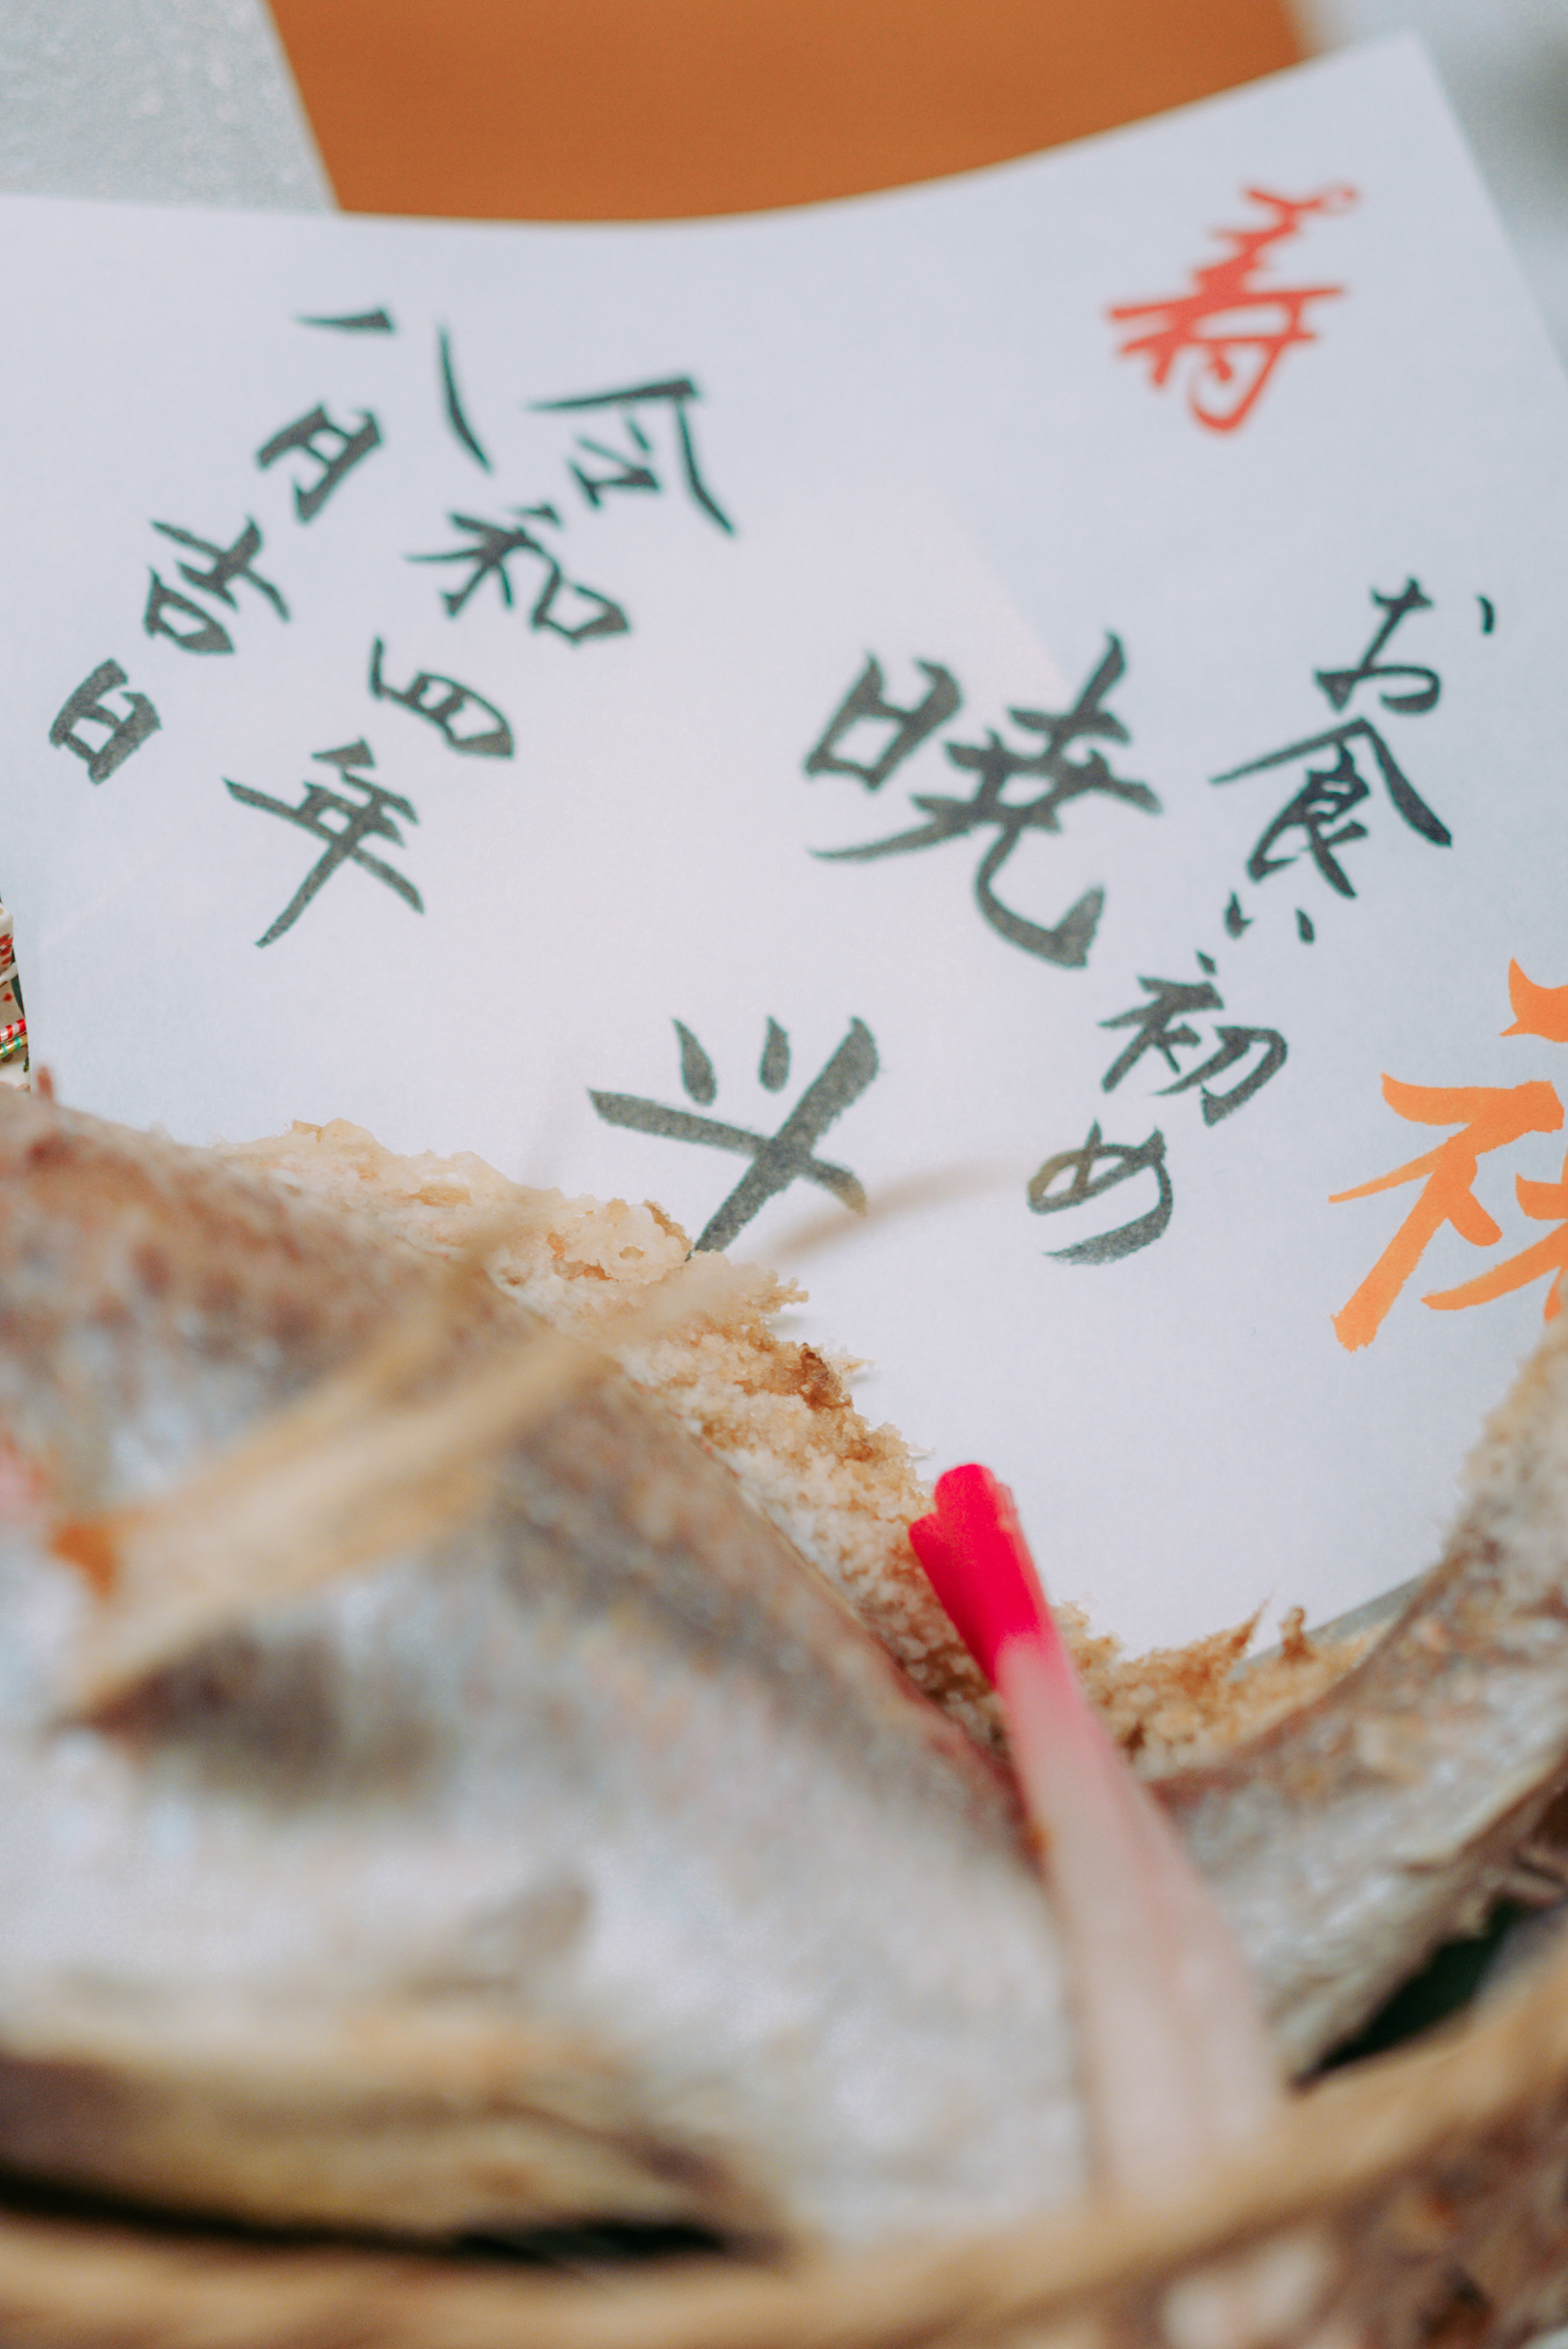 寿
お食い初め
暁斗
令和四年
八月吉日